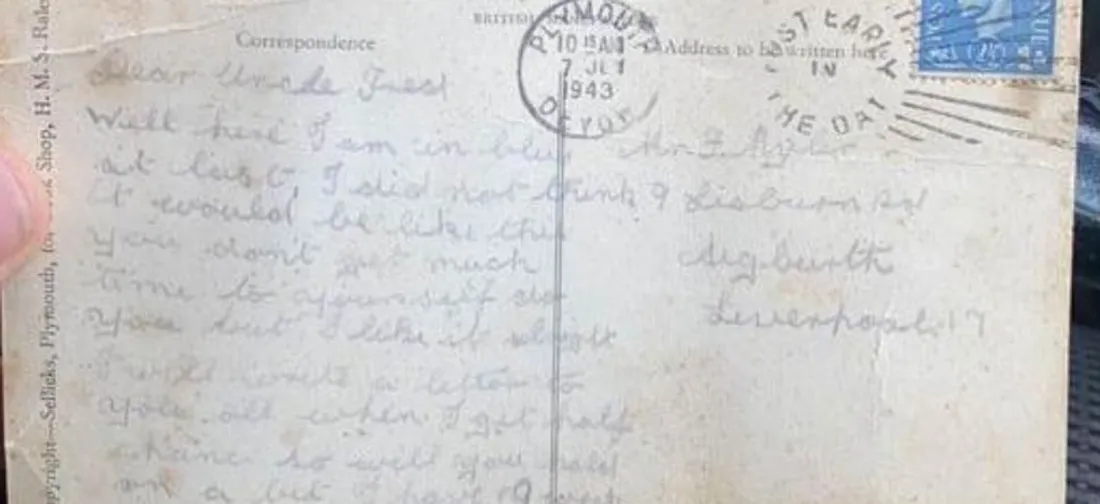 Correspondence
Address to be written here
PLYMOUTH
10 15 AM
7 JLY
1943
DEVON
POST EARLY
IN
THE DAY
Dear Uncle Fred
Well here I am in blue
at last, I did not think
it would be like this
you don't get much
time to yourself do
you but I like it alright
I will write a letter to
you all when I get half
chance so will you hold
on a bit I have 9
9 Lisburn Rd
Aigburth
Liverpool. 17
Copyright—Sellicks, Plymouth, for Shop, H. M. S. Rale